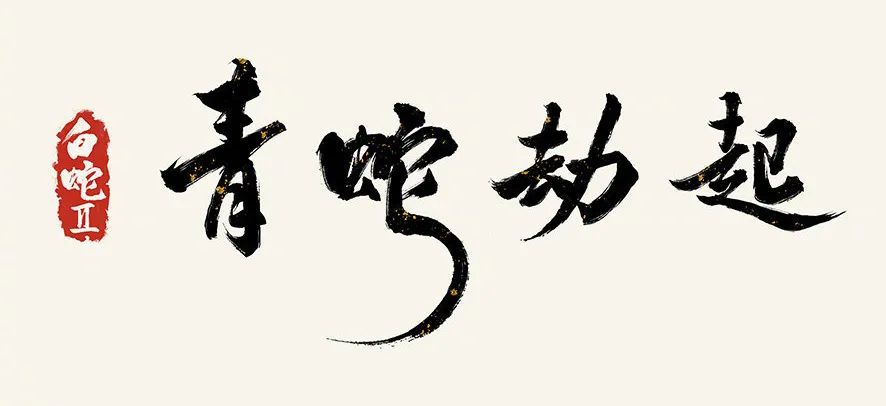 白蛇Ⅱ
青蛇劫起